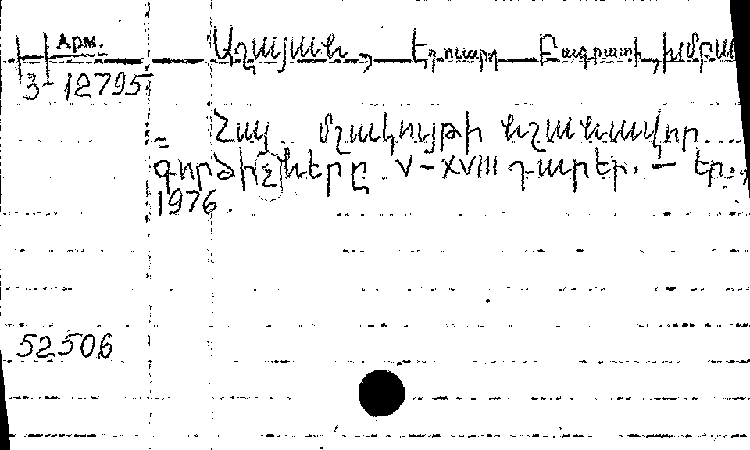 Арм.
Աղայան, Էդուարդ Բագրատի, խմբա
3-12795
Հայ մշակույթի նշանավոր
գործիչները. V–XVIII դարեր. — Եր.,
1976.
52506